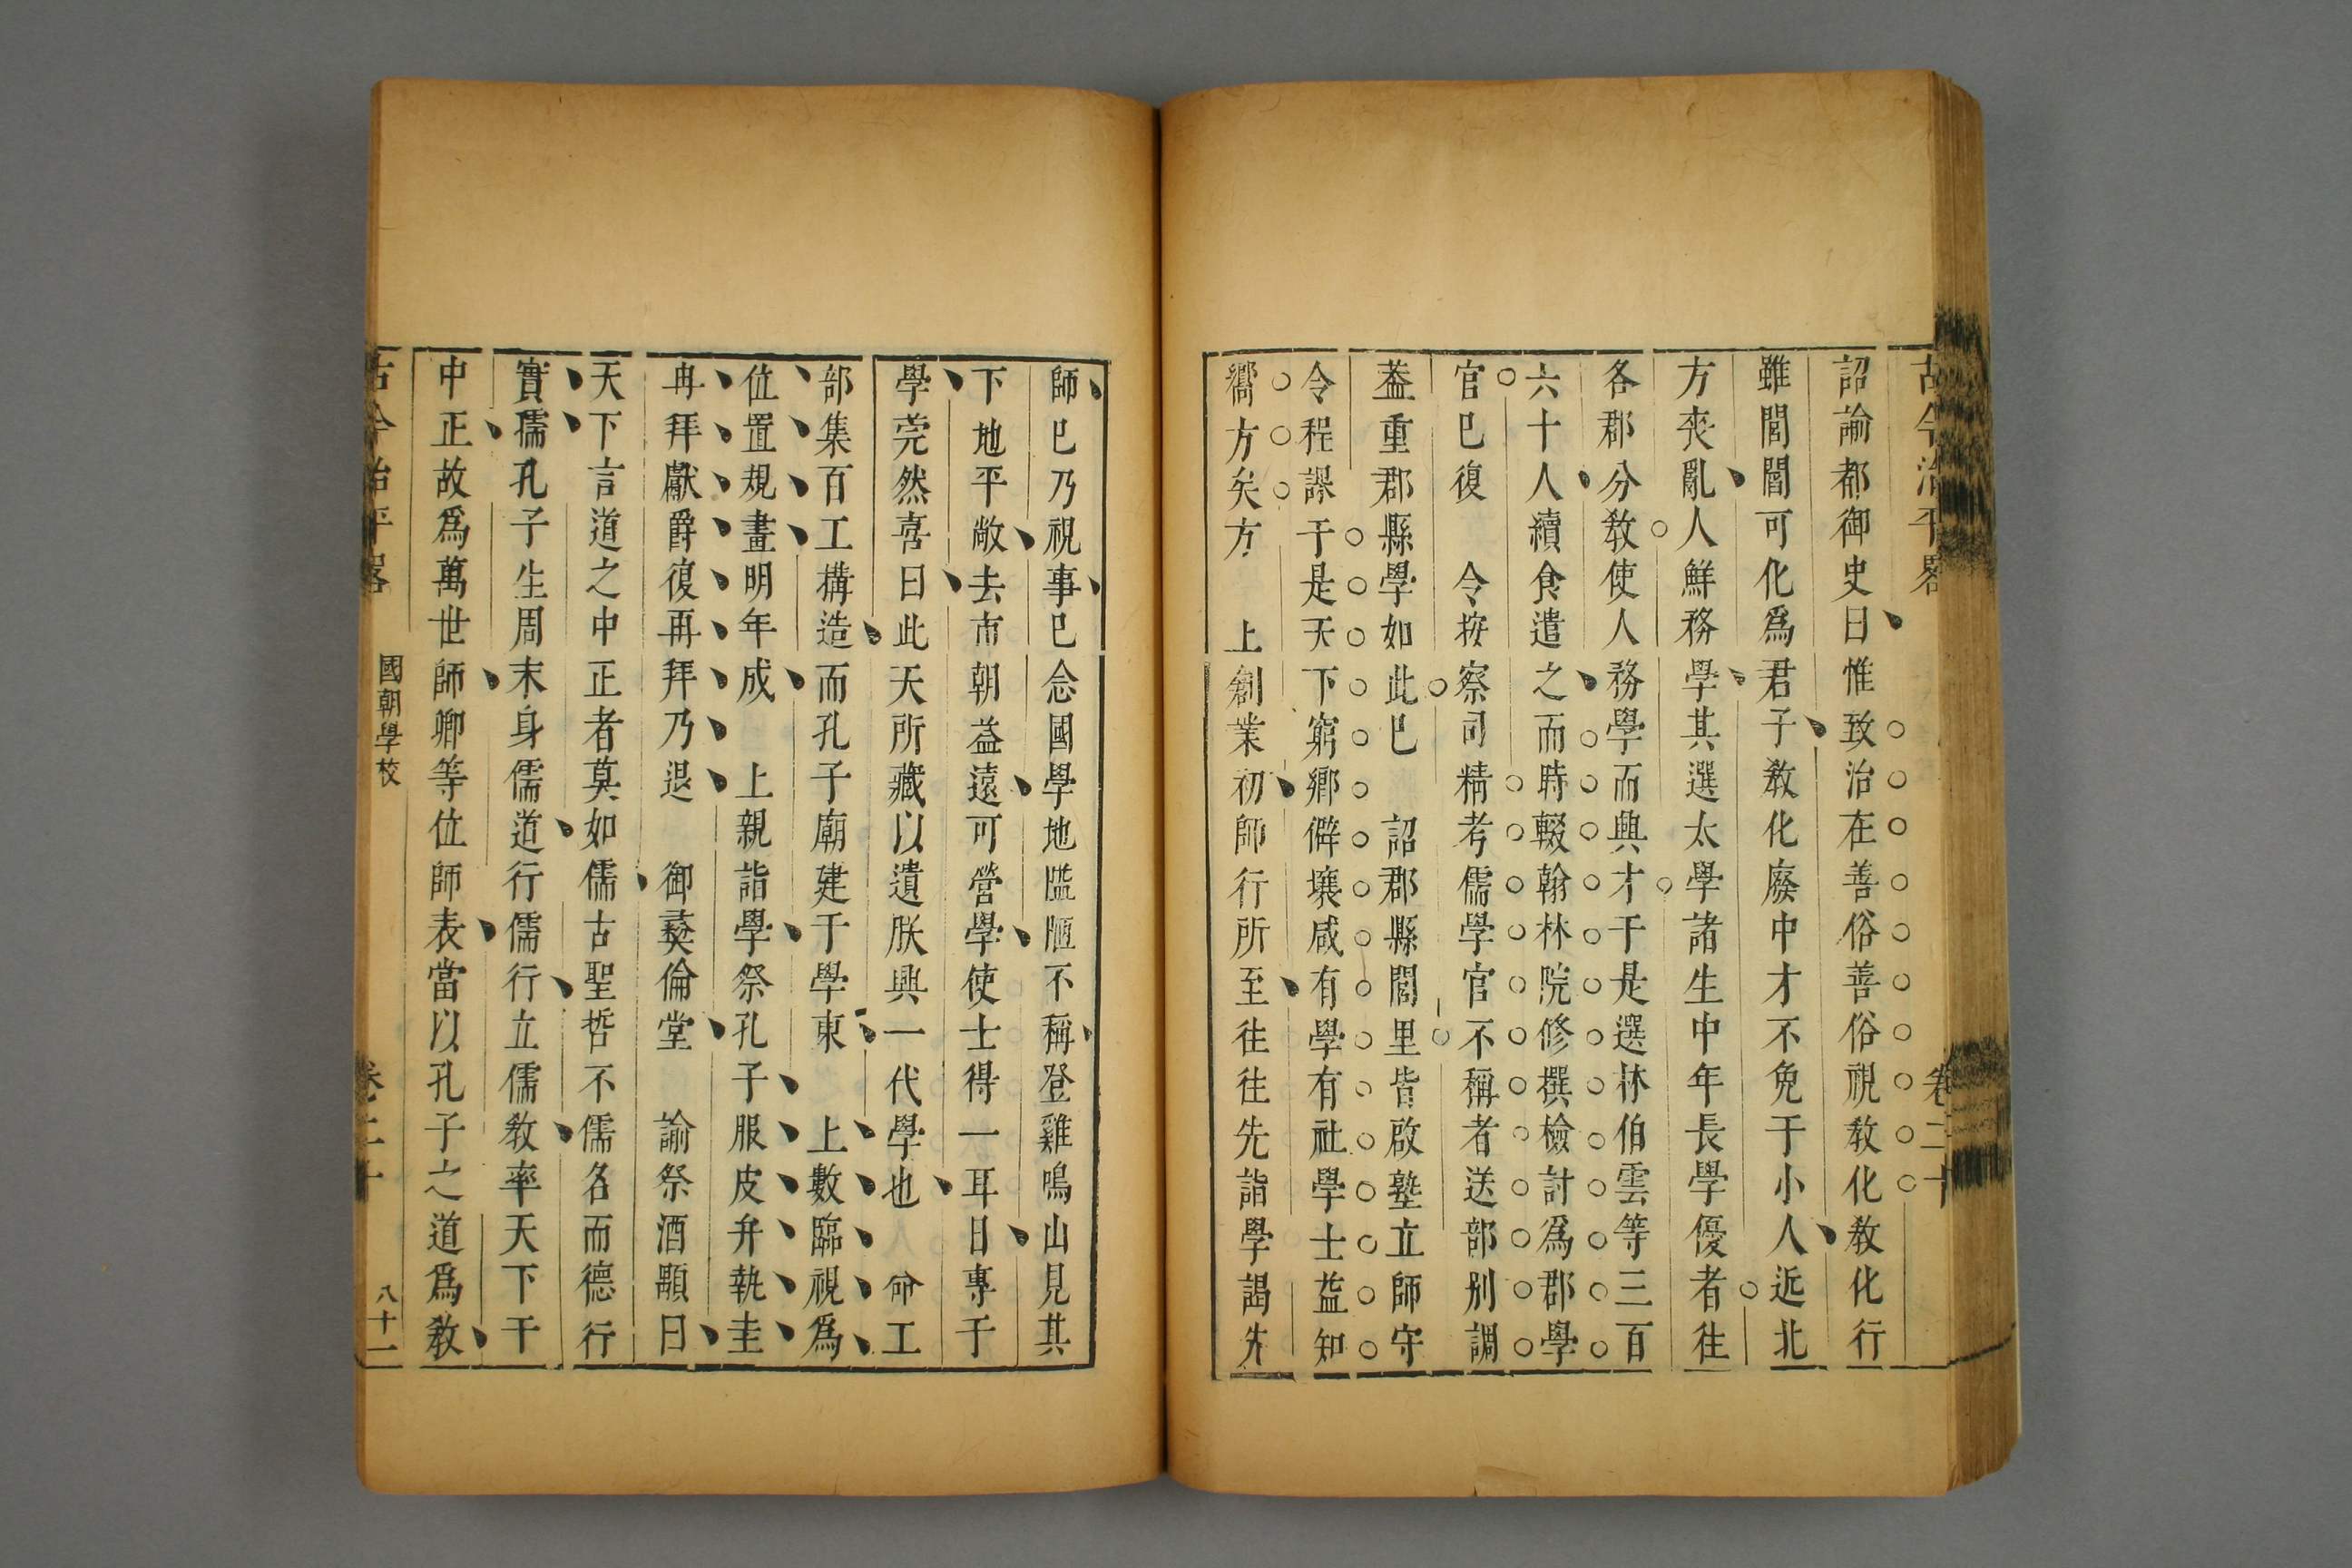 古今治平畧 卷二十
詔諭都御史曰惟致治在善俗善俗視敎化敎化行
雖閭閻可化爲君子敎化廢中才不免于小人近北
方喪亂人鮮務學其選太學諸生中年長學優者往
各郡分敎使人務學而興才于是選林伯雲等三百
六十人續食遣之而時輟翰林院修撰檢討爲郡學
官巳復 令按察司精考儒學官不稱者送部別調
葢重郡縣學如此巳 詔郡縣閭里皆啟塾立師守
令程課于是天下窮鄉僻壤咸有學有社學士益知
嚮方矣方 上創業初師行所至往往先詣學謁先
師巳乃視事巳念國學地隘陋不稱登雞鳴山見其
下地平敞去市朝益遠可營學使士得一耳目專于
學莞然喜曰此天所藏以遺朕興一代學也 命工
部集百工構造而孔子廟建于學東 上數臨視爲
位置規畫明年成 上親詣學祭孔子服皮弁執圭
再拜獻爵復再拜乃退 御彞倫堂 諭祭酒顯曰
天下言道之中正者莫如儒古聖哲不儒名而德行
實儒孔子生周末身儒道行儒行立儒敎率天下于
中正故爲萬世師卿等位師表當以孔子之道爲敎
古今治平畧 國朝學校 卷二十 八十一